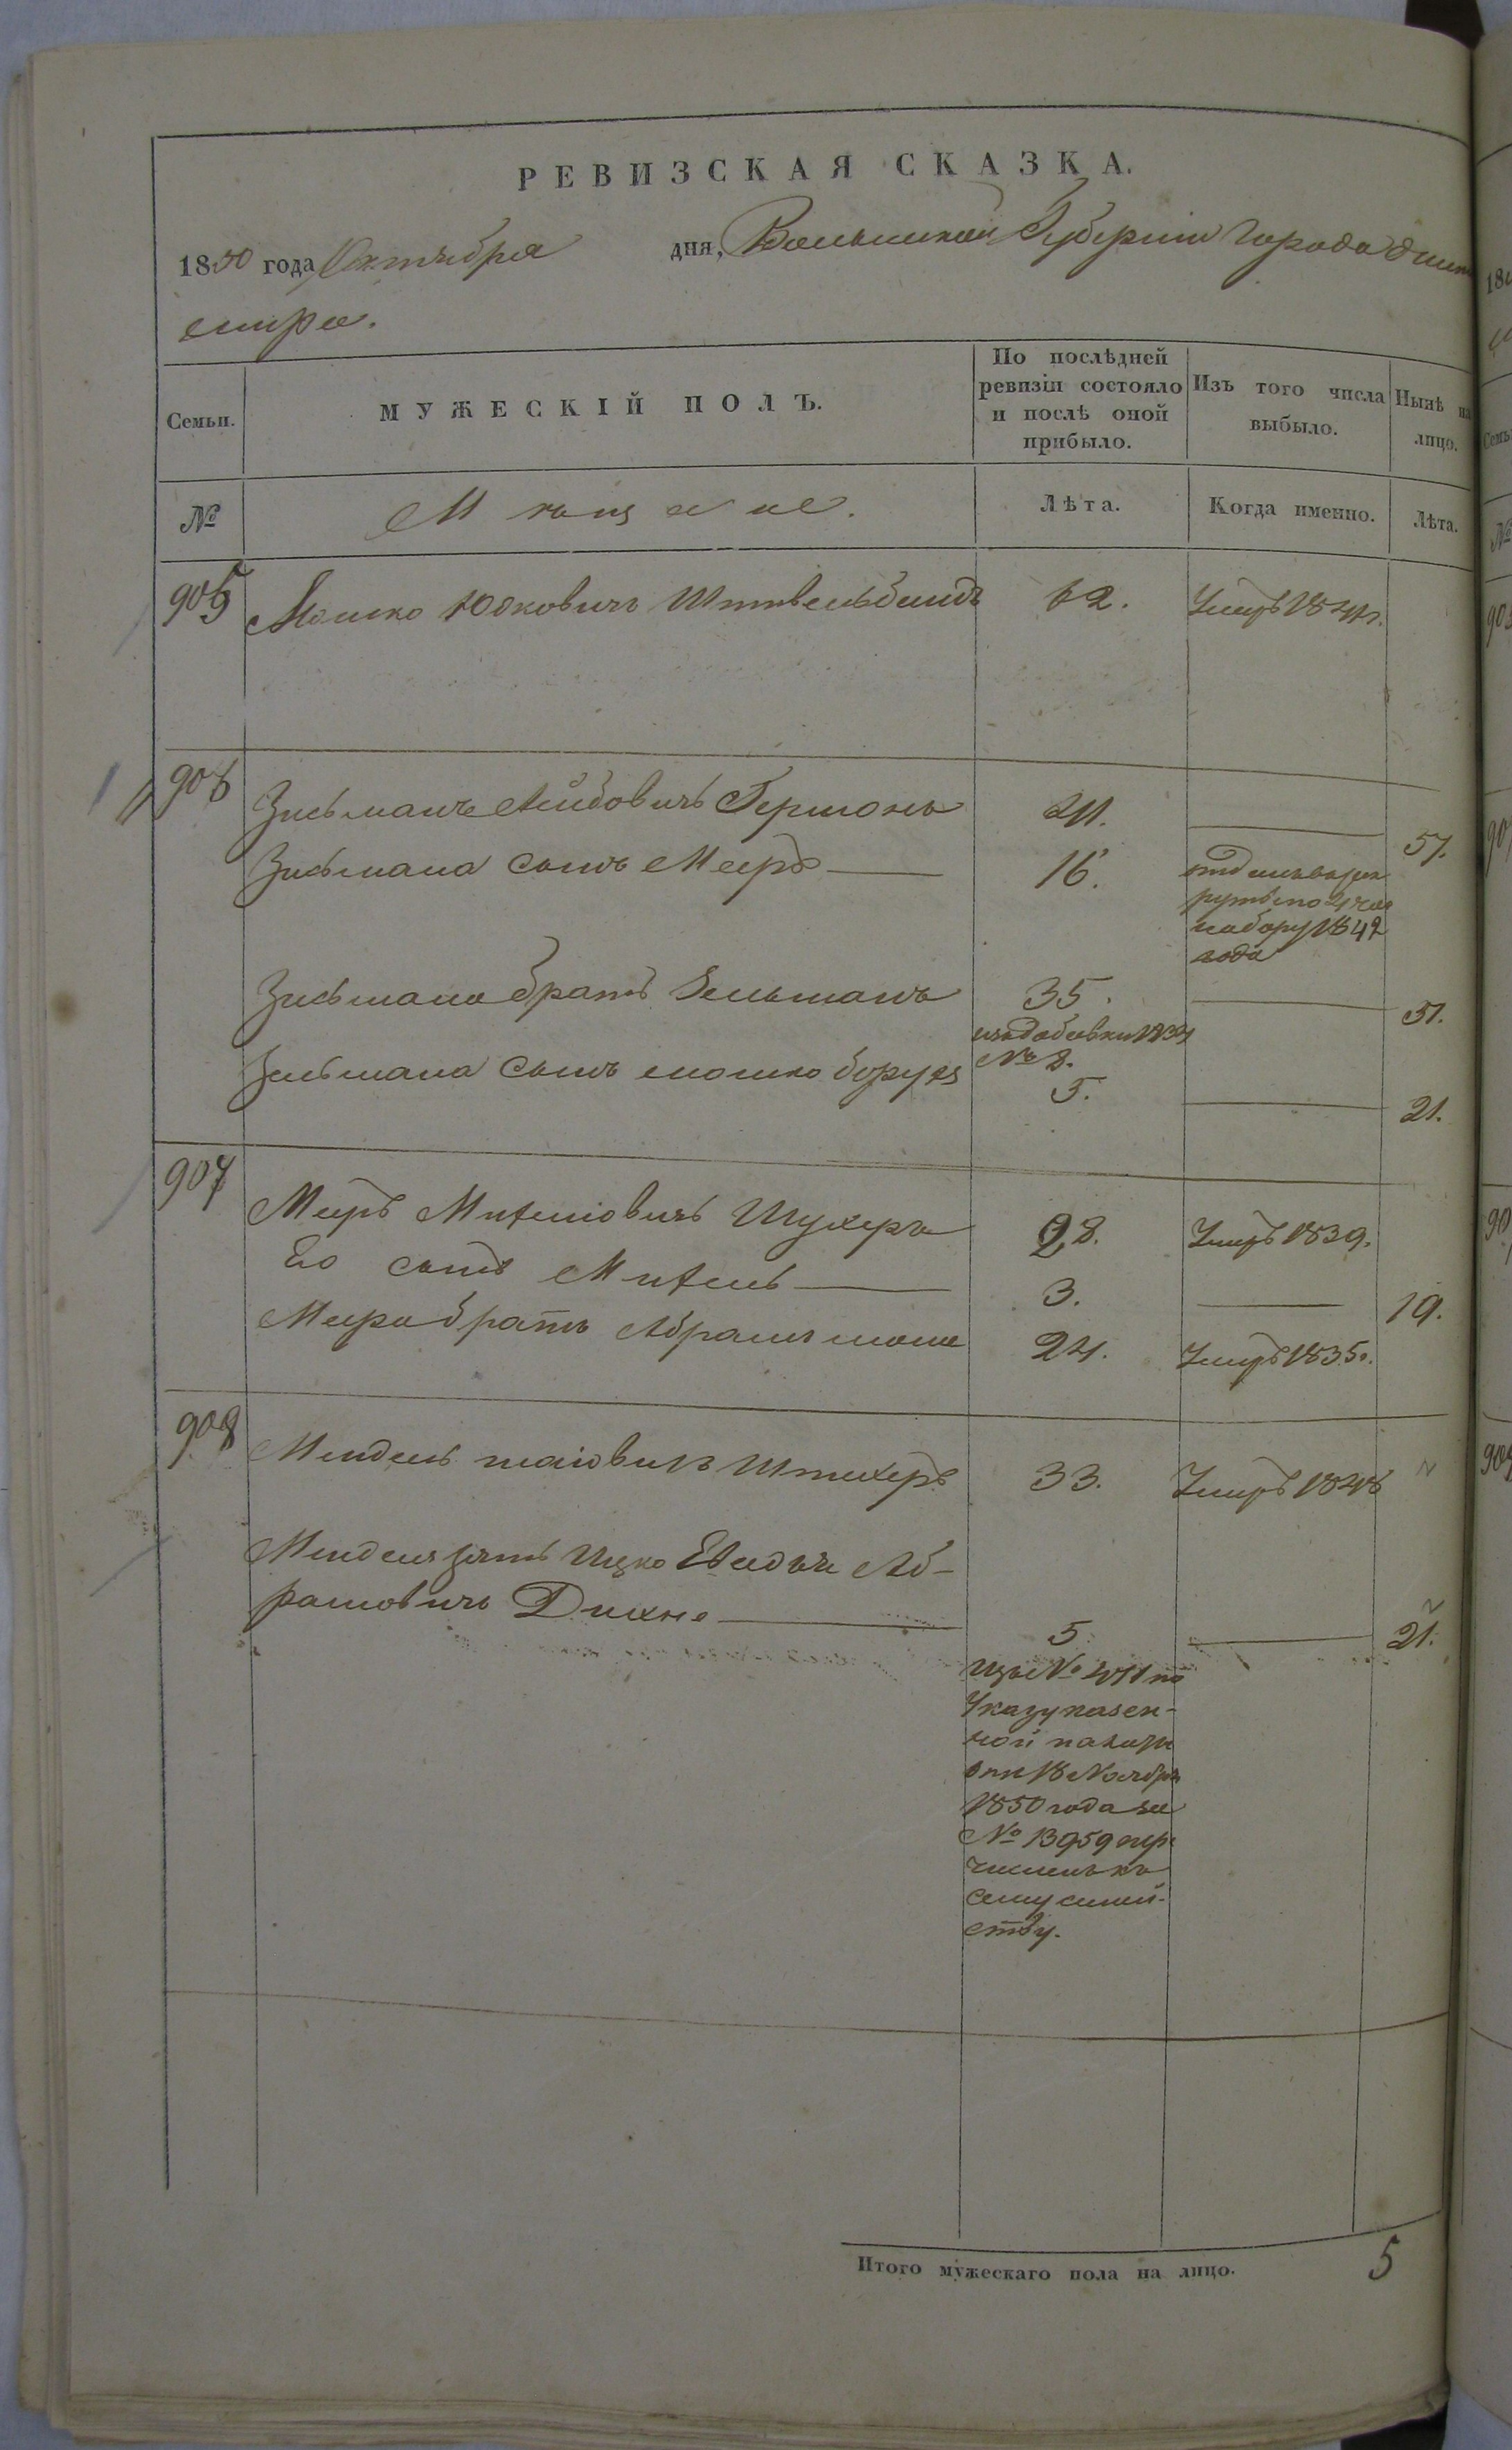 РЕВИЗСКАЯ СКАЗКА.
1850 года Октября дня, Волынской Губернии Города Жит
омира.
Семьи.
МУЖЕСКІЙ ПОЛЪ.
По послѣдней ревизіи состояло и послѣ оной прибыло.
Изъ того числа выбыло.
Нынѣ на лицо.
№
Мѣщане.
Лѣта.
Когда именно.
Лѣта.
905 Мошко Юдковичъ 62. Умеръ 184
906 Зисьманъ Лейбовичъ Гершонъ 41. 57.
Зисьмана сынъ Мееръ 16.
отданъ въ рек
руты по 4 час
набору 1842
года
Зисьмана братъ Зельманъ 35. 51.
изъ добавки 1834
№ 8.
Зельмана сынъ мошко борухъ 5. 21.
907 Мееръ Мительовичъ Шухеръ 28. Умеръ 1839.
Его сынъ Митель 3. 19.
Меера братъ Абрамъ моше 24. Умеръ 1835.
908 Мендель шаіовичъ Штихеръ 33. Умеръ 1848
Менделя зять Ицко Аб-
рамовичъ Дихне 5 21.
Изъ № 411 по
Указу казен-
ной палаты
отъ 18 Ноября
1850 года за
№ 13959 пере
численъ къ
сему семей-
ству.
Итого мужескаго пола на лицо. 5